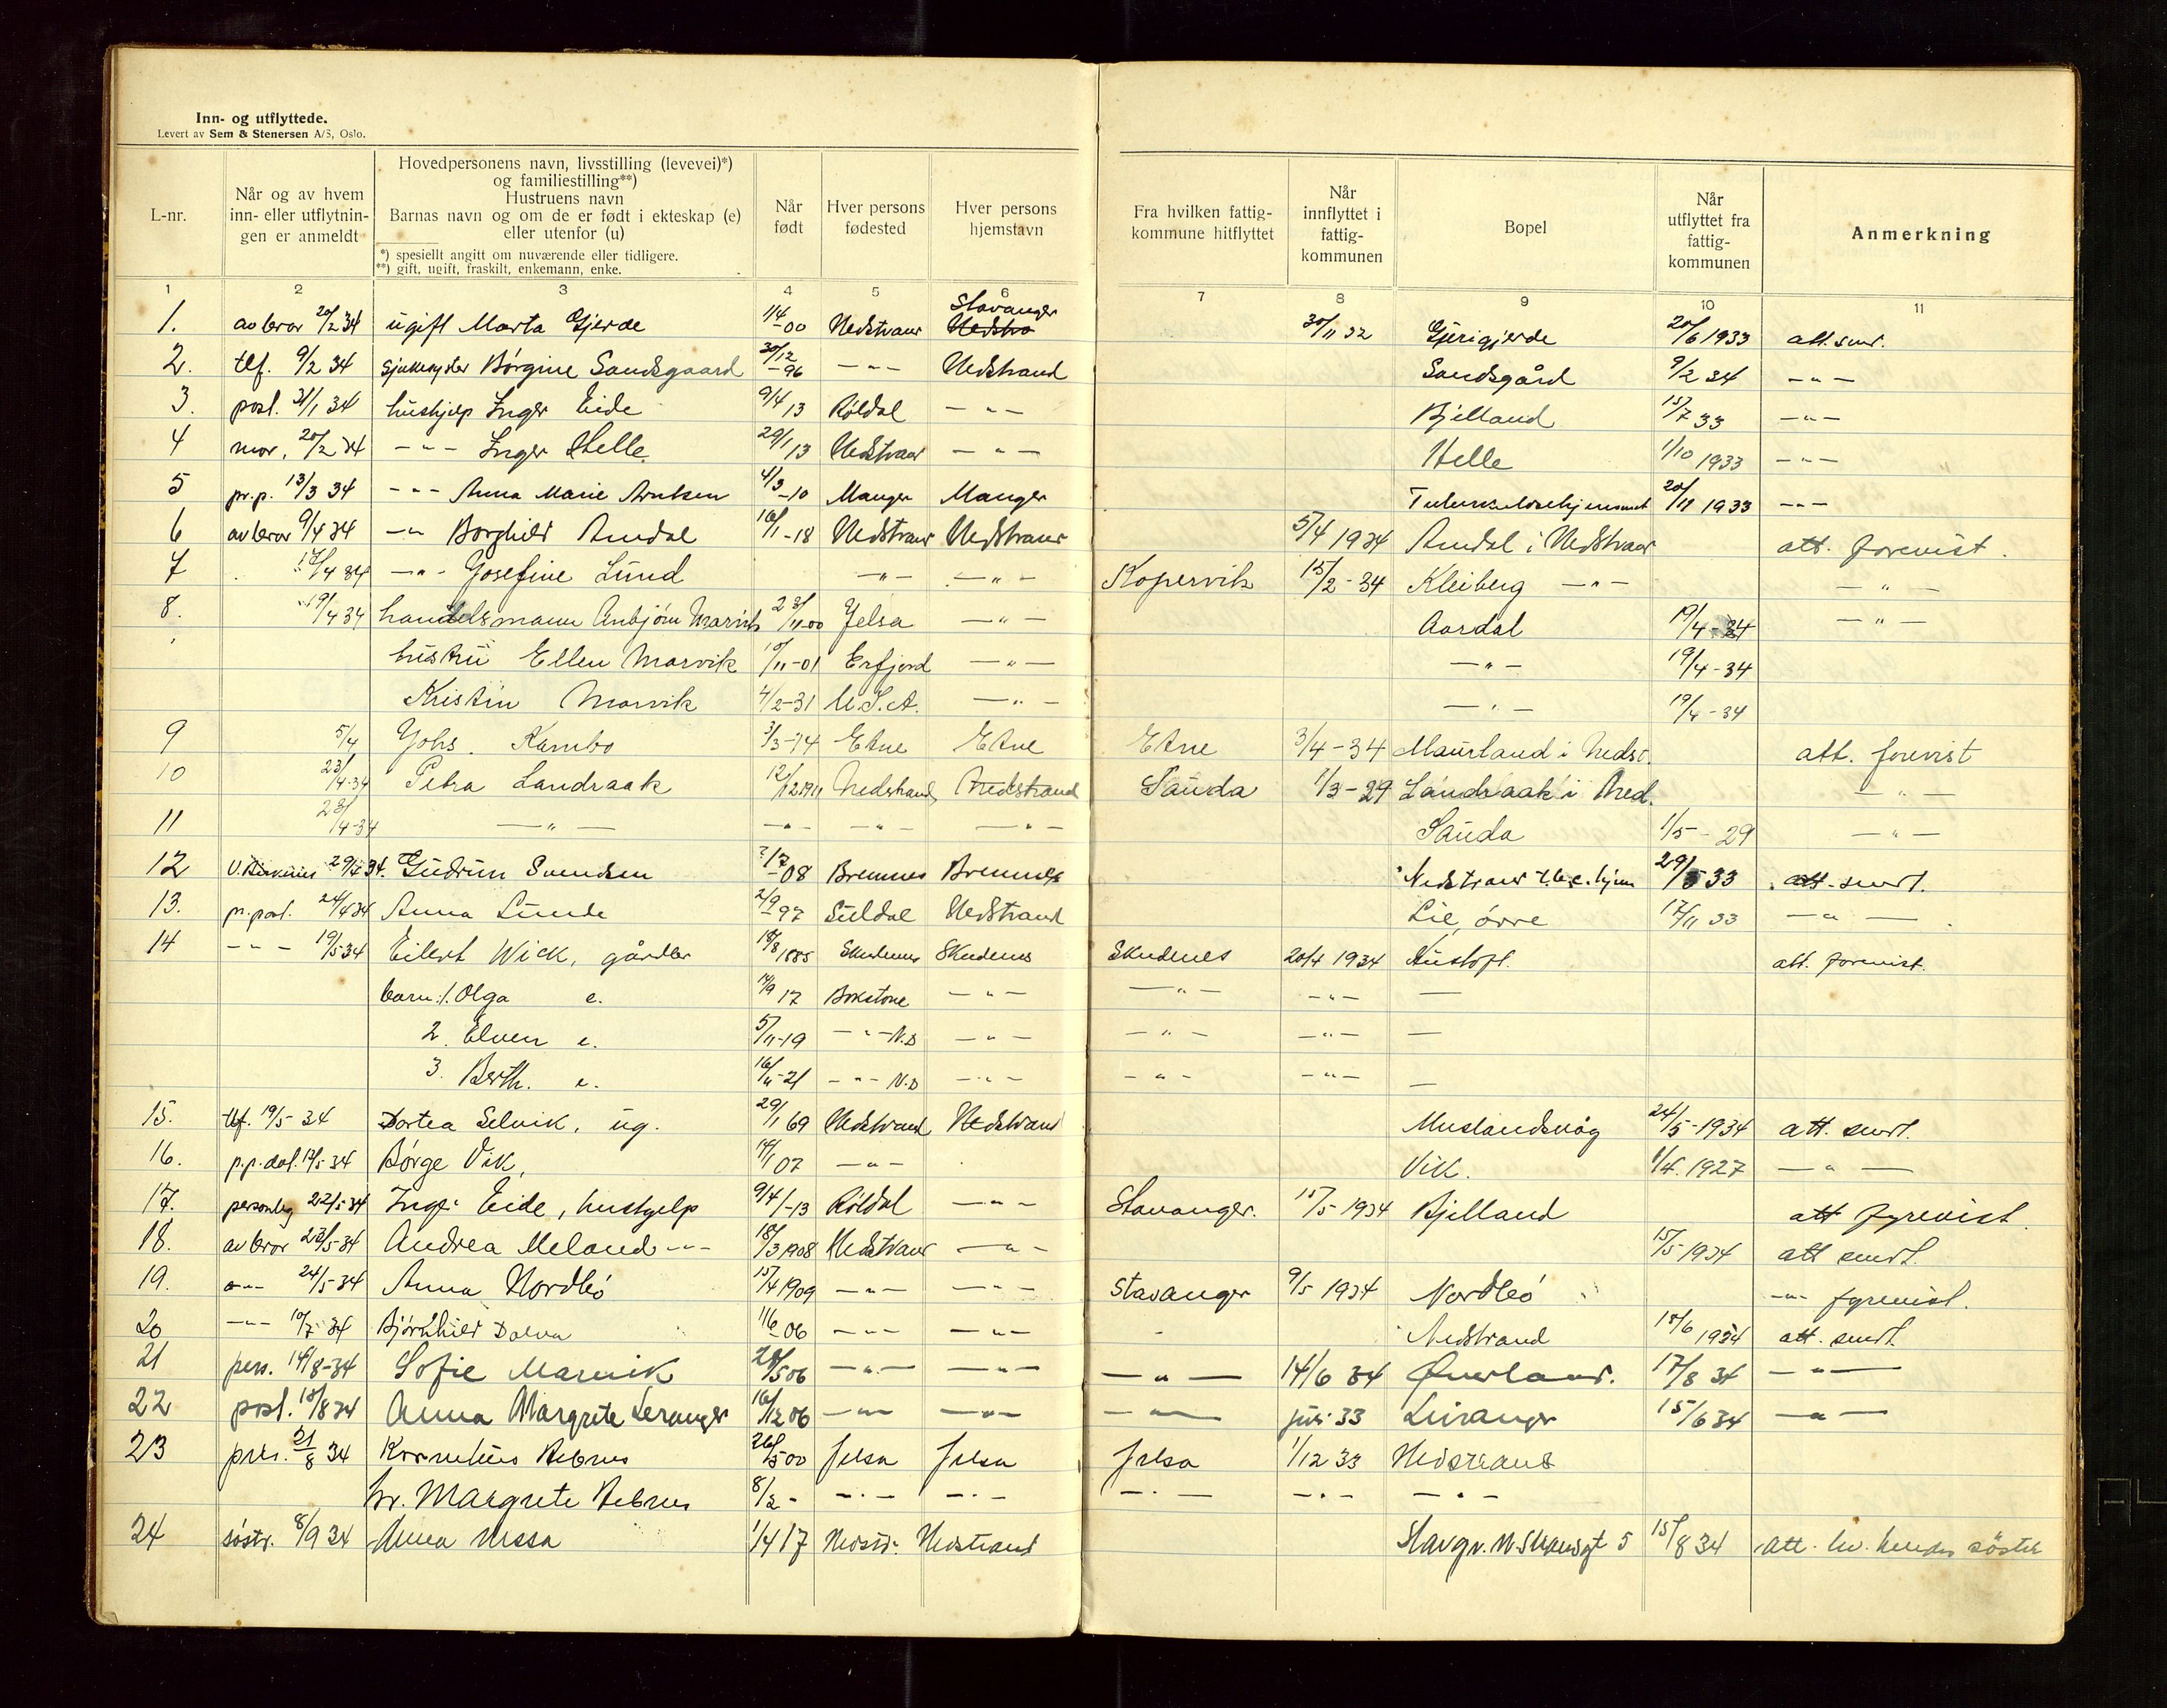 Inn- og utflyttede.
Levert av Sem & Stenersen A/S, Oslo.
L-nr.
Når og av hvem inn- eller utflytnin- gen er anmeldt
Hovedpersonens navn, livsstilling (levevei)*) og familiestilling**)
Hustruens navn
Barnas navn og om de er født i ekteskap (e) eller utenfor (u)
*) spesiellt angitt om nuværende eller tidligere.
**) gift, ugift, fraskilt, enkemann, enke.
Når født
Hver persons fødested
Hver persons hjemstavn
Fra hvilken fattig- kommune hitflyttet
Når innflyttet i fattig- kommunen
Bopel
Når utflyttet fra fattig- kommunen
Anmerkning
1 2 3 4 5 6 7 8 9 10 11
1. av bror 20/2 34 ugift Marta Gjerde 11/4 -00 Nedstrand Stavanger 30/11 32 20/6 1933 att. send.
2. tlf. 9/2 34 Børgine Sandsgaard 30/12 -96 -"- Nedstrand Sandsgård 9/2 34 -"-
3. post. 31/1 34 hushjelp Inger Eide 9/4 13 Røldal -"- Bjelland 15/7 33 -"-
4 mor. 20/2 34 -"- Inger Helle 29/1 13 Nedstrand -"- Helle 1/10 1933 -"-
5 pr.p. 13/3 34 -"- Anna Marie 4/3 -10 Manger Manger 20/11 1933 -"-
6 av bror 9/4 34 -"- Borghild Amdal 16/1 -18 Nedstrand Nedstrand 5/4 1934 Amdal i Nedstrand att. forevist.
7 17/4 34 -"- Josefine Lund -"- -"- Kopervik 15/2-34 Kleiberg -"- -"-
8. 19/4 34 handelsmann Anbjørn Marvik 23/11-00 Jelsa -"- Aardal 19/4-34 -"-
hustru Ellen Marvik 10/11-01 Erfjord -"- -"- 19/4-34
Kristin Marvik 4/2-31 U.S.A. -"- -"- 19/4-34
9 5/4 Johs. Kambo 3/3-74 Etne Etne Etne 3/4-34 Maurland i Nedst. att. forevist
10 23/4-34 Petra Landraak 12/12 1911 Nedstrand Nedstrand Sauda 1/3-29 Landraak i Ned. -"-
11 23/4-34 -"- -"- -"- -"- Sauda 1/5-29 -"-
12 29/4 34. Gudrun Svendsen 17 -08 Bremnes Bremnes Nedstrand t.b.c. hjem 29/5 33 att. sendt.
13. pr. post. 24/4 34 Anna Lunde 2/9 -97 Suldal Nedstrand Lie, øvre 17/11 33 -"-
14 -"- 19/5 34 Eilert Wick, gårdbr 18/8 1885 Skudenes Skudenes Skudenes 20/4 1934 att. forevist.
barn: 1. Olga e. 14/9 17 -"- -"- -"- —
2. Elven e. 5/11-19 -"- N.S -"- -"- -"- —
3. Berth. e. 16/11-21 -"- N.S -"- -"- -"- —
15. tlf. 19/5-34 Dortea Selvik, ug. 29/1 69 Nedstrand Nedstrand Muslandsvåg 24/5-1934 att. sendt.
16. 19/5-34 Børge Vik, 14/1 07 -"- Vik. 1/4. 1927 -"-
17. personleg 22/5-34 Inger Eide, hushjelp 9/4-13 Røldal -"- Stavanger. 15/5 1934 Bjelland att fyrevist.
18. av bror 23/5-34 Andrea Meland -"- 18/3 1908 Nedstrand -"- 15/5 1934 att sendt.
19. -"- 24/5-34 Anna Nordbø 15/4 1909 -"- -"- Stavanger 9/5 1934 Nordbø -"- fyrevist.
20 -"- 10/7-34 Bjørnhild Dalva 11/6 -06 -"- -"- - Nedstrand 18/6 1934 att. sendt.
21 pers. 14/8-34 Sofie Marvik 28/5 06 -"- -"- -"- 14/6 34 Øverland. 17/8 34 -"-
22 post. 18/8 34 Anna Margrete Leranger 16/12 06 -"- -"- -"- juni 33 Leiranger 15/6 34 -"-
23 pers. 21/8 34 Kornelius 26/5 00 Jelsa Jelsa Jelsa 1/12 33 Nedstrand
hr. Margrete 8/2- -"- -"- -"- -"- -"-
24 søstr. 8/9 34 Anna Nessa 1/4 17 Nedstr. Nedstrand Stavgr. N. Strandgt 5 15/8 34 att. lev. hendes søster